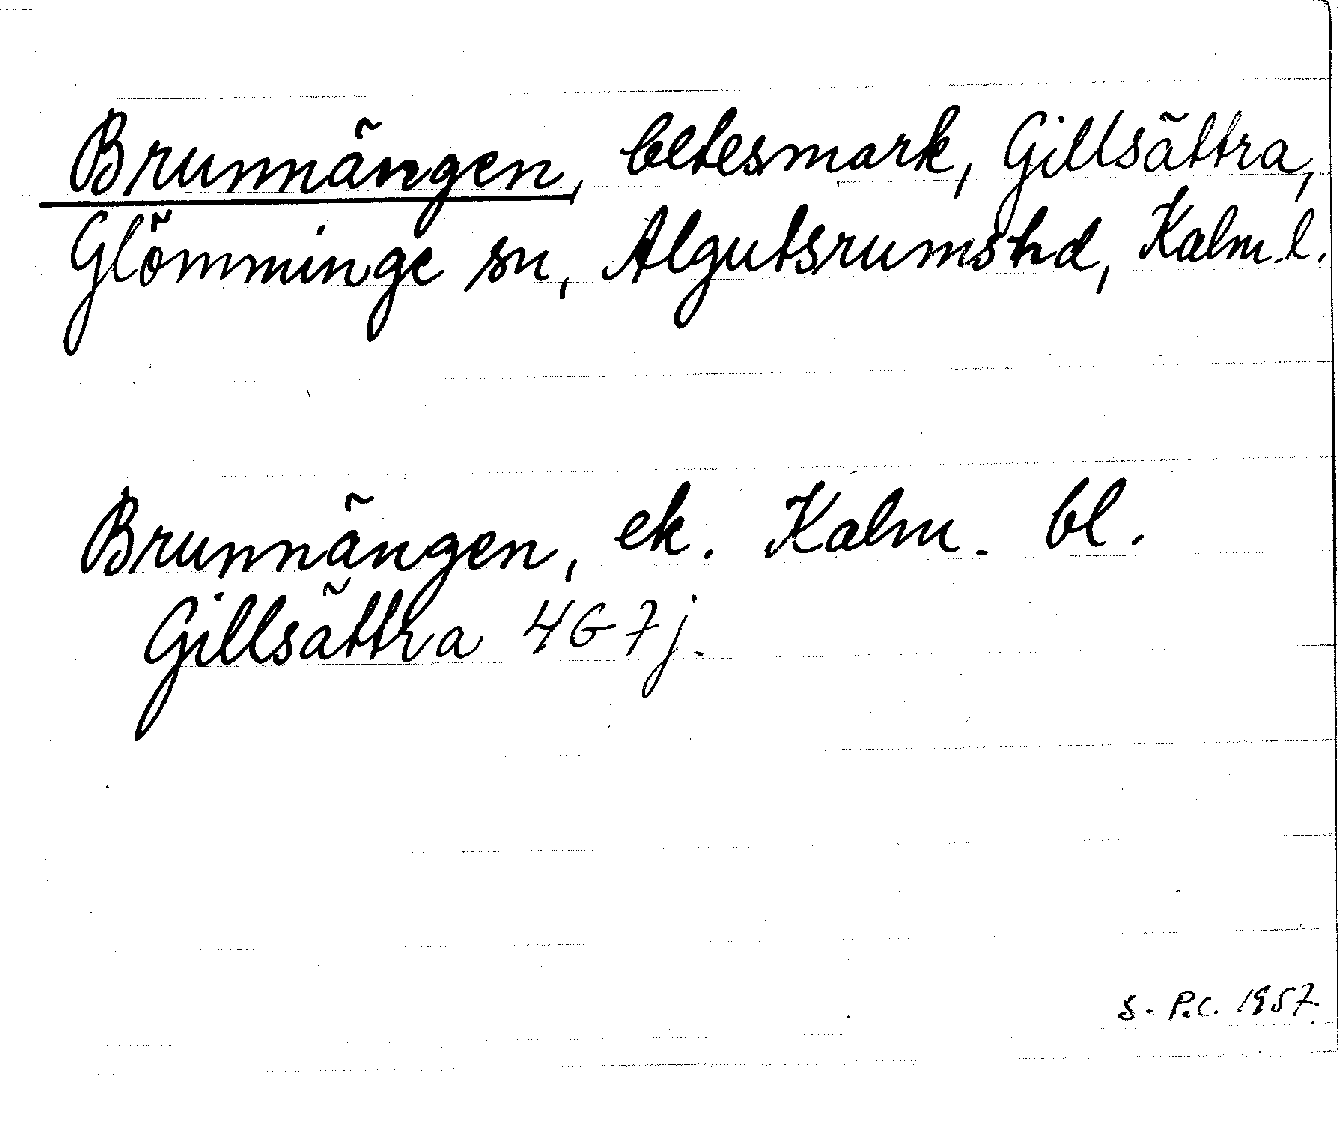 Brunnängen, betesmark, Gillsättra,
Glömminge sn, Algutsrumshd, Kalm.l.
Brunnängen, ek. Kalm. bl.
Gillsättra 4G7j.
S. P.C. 1957.